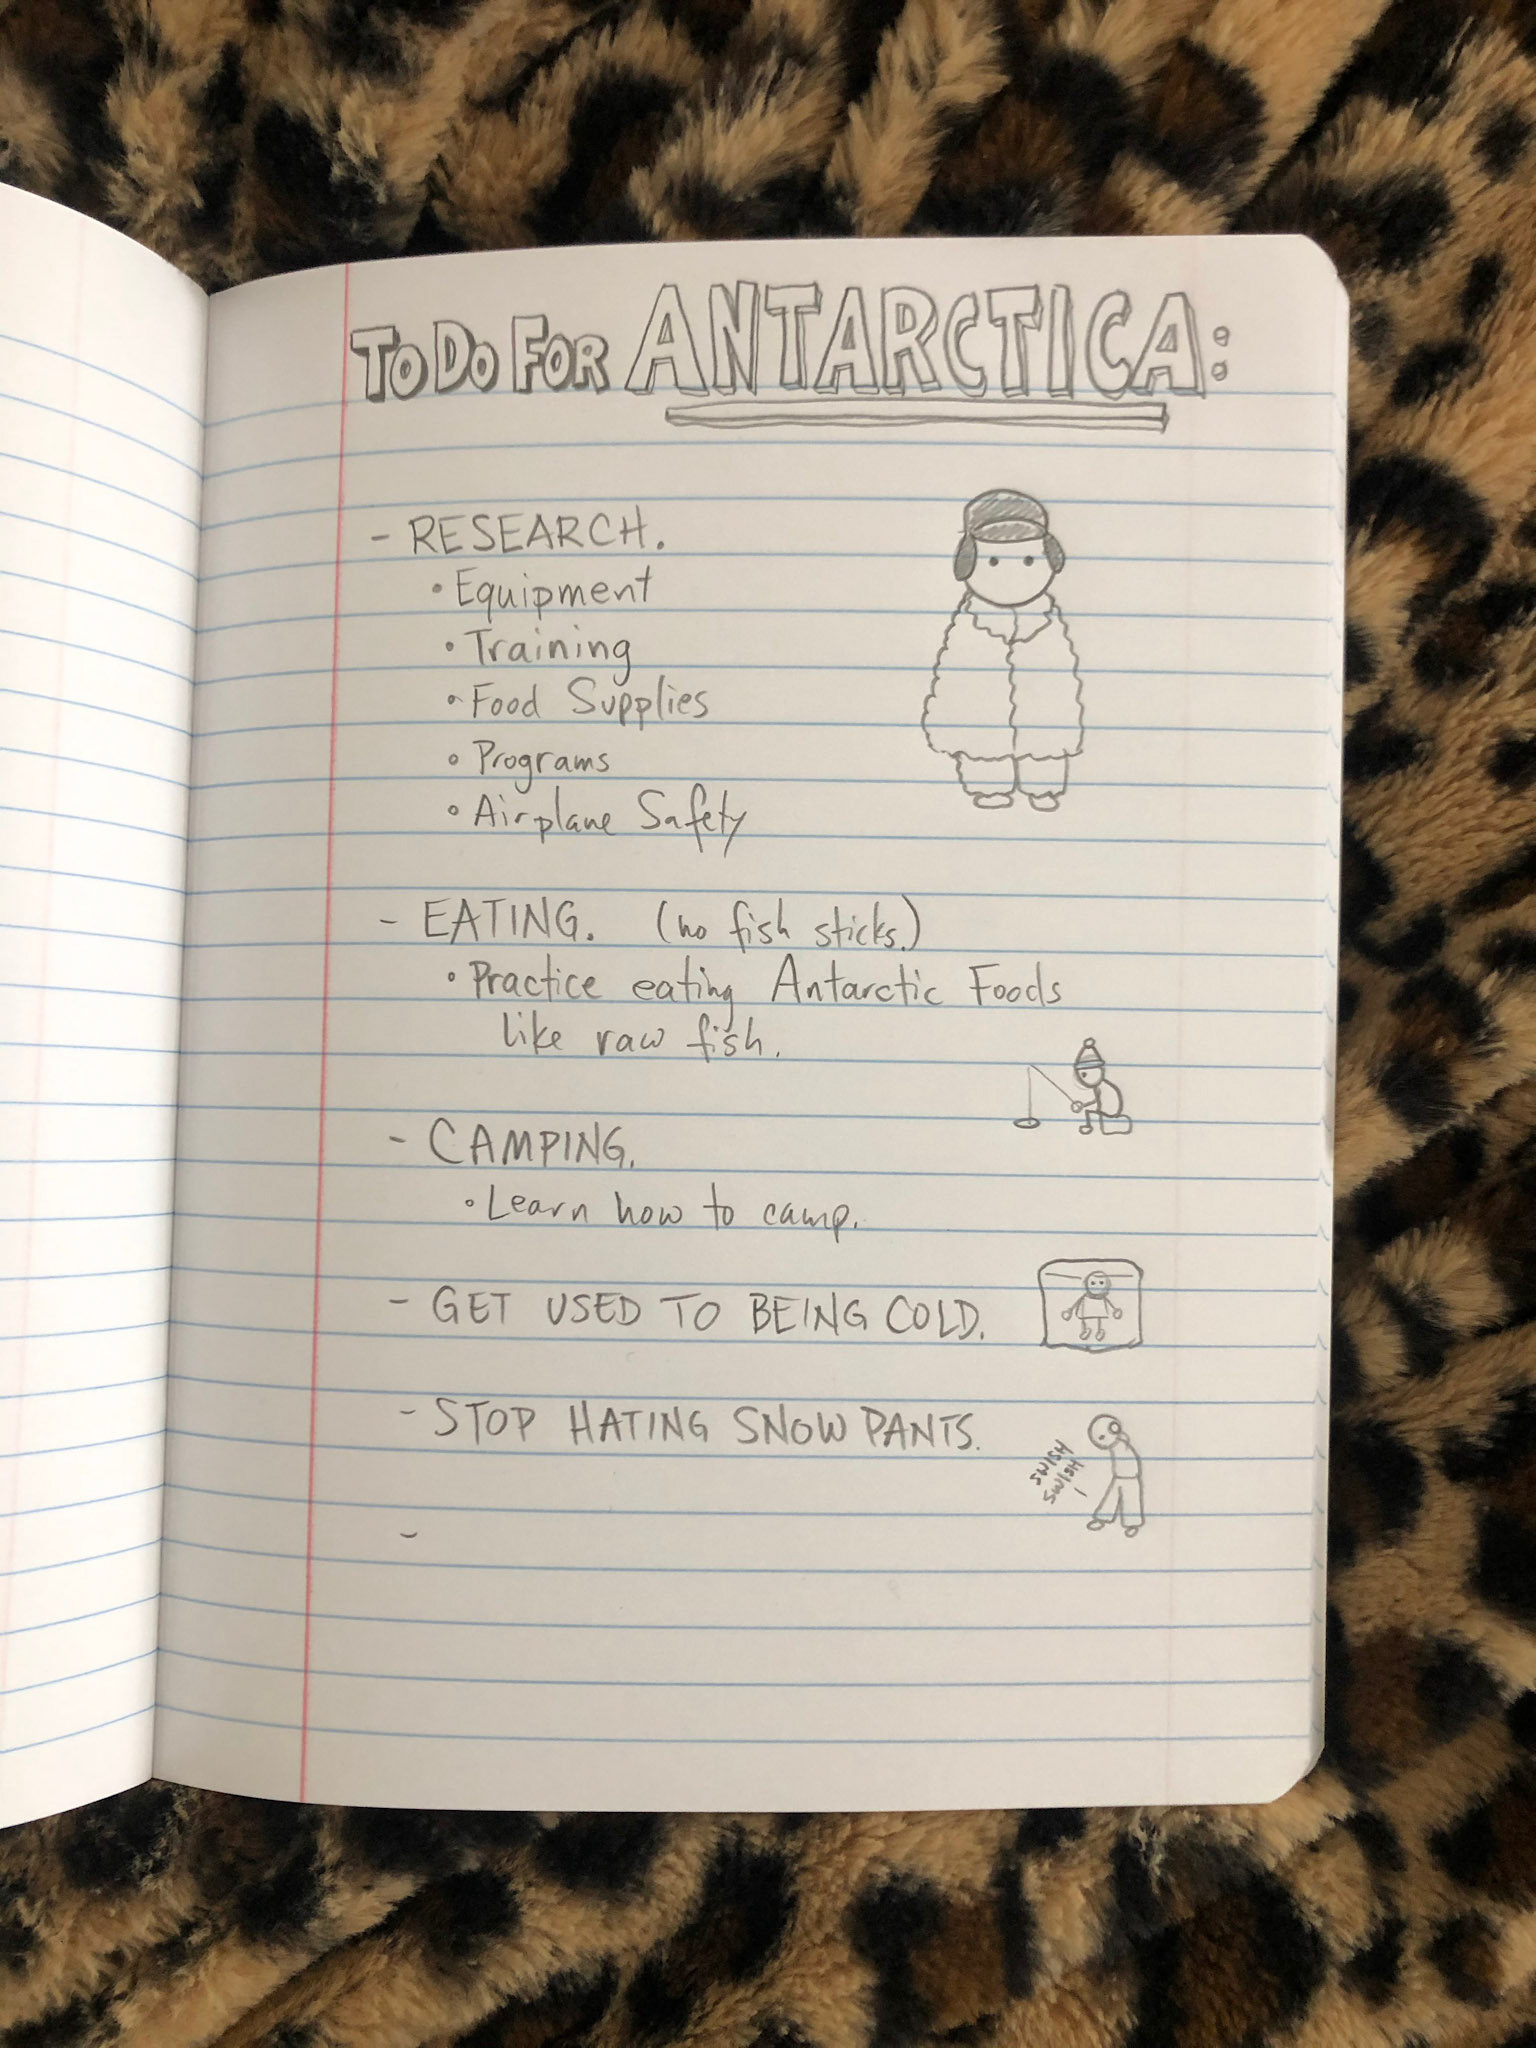 TO DO FOR ANTARCTICA:
- RESEARCH.
• Equipment
• Training
• Food Supplies
• Programs
• Airplane Safety
- EATING. (no fish sticks.)
• Practice eating Antarctic Foods
like raw fish.
- CAMPING.
• Learn how to camp.
- GET USED TO BEING COLD.
- STOP HATING SNOW PANTS.
SWISH
SWISH
-